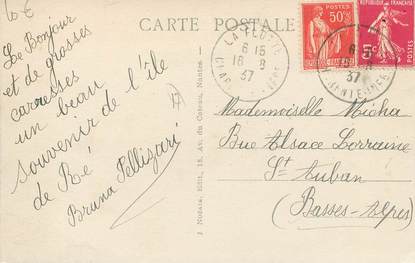 10€
CARTE POSTALE
Le Bonjour
et de grosses
caresses
un beau
souvenir de l'île
de Ré
Bruna Pellizari
50c
5c
POSTES
LA FLOTTE
6 15
16 - 8
37
37
Mademoiselle Micha
Rue Alsace Lorraine
St Auban
(Basses-Alpes)
J. Nozais, Édit., 15, Av. du Coteau, Nantes.